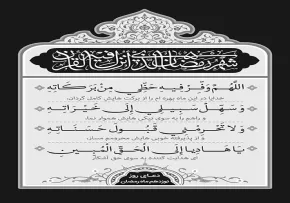 شهر رمضان الذي أنزل فيه القرآن
اللهم وفر فيه حظي من بركاته
خدایا در این ماه بهره ام را از برکت هایش کامل گردان
وسهل سبيلي إلى خيراته
و راهم را به سوی نیکی هایش هموار نما
ولا تحرمني قبول حسناته
و از پذیرفته خوبی هایش محرومم مساز
يا هاديا إلى الحق المبين
ای هدایت کننده به سوی حق آشکار
دعای روز
نوزدهم ماه رمضان